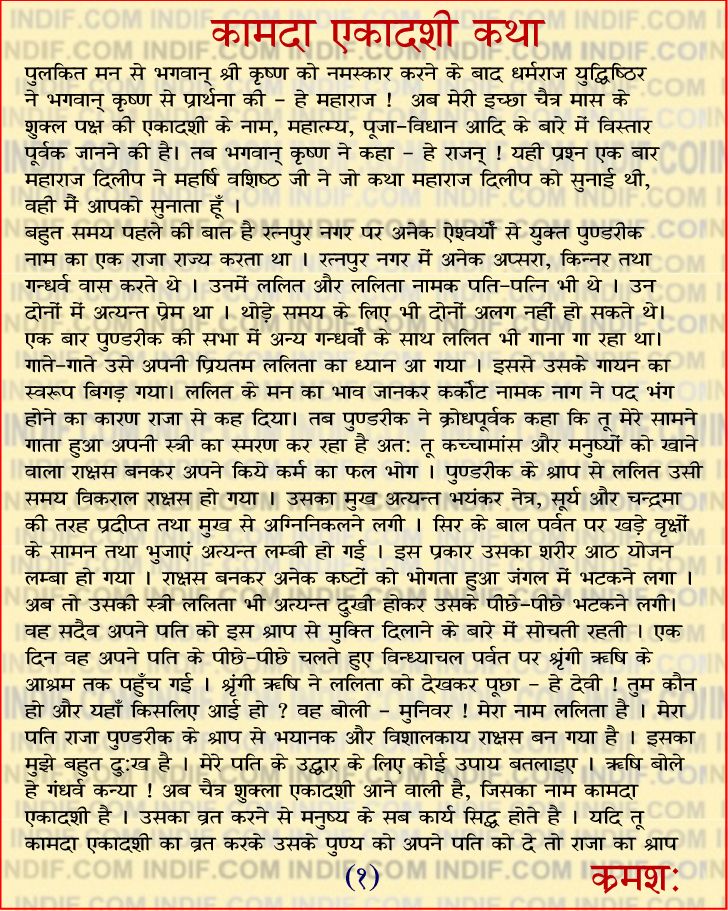 कामदा एकादशी कथा
पुलकित मन से भगवान् श्री कृष्ण को नमस्कार करने के बाद धर्मराज युद्धिष्ठिर
ने भगवान् कृष्ण से प्रार्थना की - हे महाराज ! अब मेरी इच्छा चैत्र मास के
शुक्ल पक्ष की एकादशी के नाम, महात्म्य, पूजा-विधान आदि के बारे में विस्तार
पूर्वक जानने की है। तब भगवान् कृष्ण ने कहा - हे राजन् ! यही प्रश्न एक बार
महाराज दिलीप ने महर्षि वशिष्ठ जी ने जो कथा महाराज दिलीप को सुनाई थी,
वही मैं आपको सुनाता हूँ ।
बहुत समय पहले की बात है रत्नपुर नगर पर अनेक ऐश्वर्यों से युक्त पुण्डरीक
नाम का एक राजा राज्य करता था । रत्नपुर नगर में अनेक अप्सरा, किन्नर तथा
गन्धर्व वास करते थे । उनमें ललित और ललिता नामक पति-पत्नि भी थे । उन
दोनों में अत्यन्त प्रेम था । थोड़े समय के लिए भी दोनों अलग नहीं हो सकते थे।
एक बार पुण्डरीक की सभा में अन्य गन्धर्वों के साथ ललित भी गाना गा रहा था।
गाते-गाते उसे अपनी प्रियतम ललिता का ध्यान आ गया । इससे उसके गायन का
स्वरूप बिगड़ गया। ललित के मन का भाव जानकर कर्कोट नामक नाग ने पद भंग
होने का कारण राजा से कह दिया। तब पुण्डरीक ने क्रोधपूर्वक कहा कि तू मेरे सामने
गाता हुआ अपनी स्त्री का स्मरण कर रहा है अतः तू कच्चामांस और मनुष्यों को खाने
वाला राक्षस बनकर अपने किये कर्म का फल भोग । पुण्डरीक के श्राप से ललित उसी
समय विकराल राक्षस हो गया । उसका मुख अत्यन्त भयंकर नेत्र, सूर्य और चन्द्रमा
की तरह प्रदीप्त तथा मुख से अग्निनिकलने लगी । सिर के बाल पर्वत पर खड़े वृक्षों
के सामन तथा भुजाएं अत्यन्त लम्बी हो गई । इस प्रकार उसका शरीर आठ योजन
लम्बा हो गया । राक्षस बनकर अनेक कष्टों को भोगता हुआ जंगल में भटकने लगा ।
अब तो उसकी स्त्री ललिता भी अत्यन्त दुखी होकर उसके पीछे-पीछे भटकने लगी।
वह सदैव अपने पति को इस श्राप से मुक्ति दिलाने के बारे में सोचती रहती । एक
दिन वह अपने पति के पीछे-पीछे चलते हुए विन्ध्याचल पर्वत पर श्रृंगी ऋषि के
आश्रम तक पहुँच गई । श्रृंगी ऋषि ने ललिता को देखकर पूछा - हे देवी ! तुम कौन
हो और यहाँ किसलिए आई हो ? वह बोली - मुनिवर ! मेरा नाम ललिता है । मेरा
पति राजा पुण्डरीक के श्राप से भयानक और विशालकाय राक्षस बन गया है । इसका
मुझे बहुत दुःख है । मेरे पति के उद्धार के लिए कोई उपाय बतलाइए । ऋषि बोले
हे गंधर्व कन्या ! अब चैत्र शुक्ला एकादशी आने वाली है, जिसका नाम कामदा
एकादशी है । उसका व्रत करने से मनुष्य के सब कार्य सिद्ध होते है । यदि तू
कामदा एकादशी का व्रत करके उसके पुण्य को अपने पति को दे तो राजा का श्राप
(१) क्रमशः